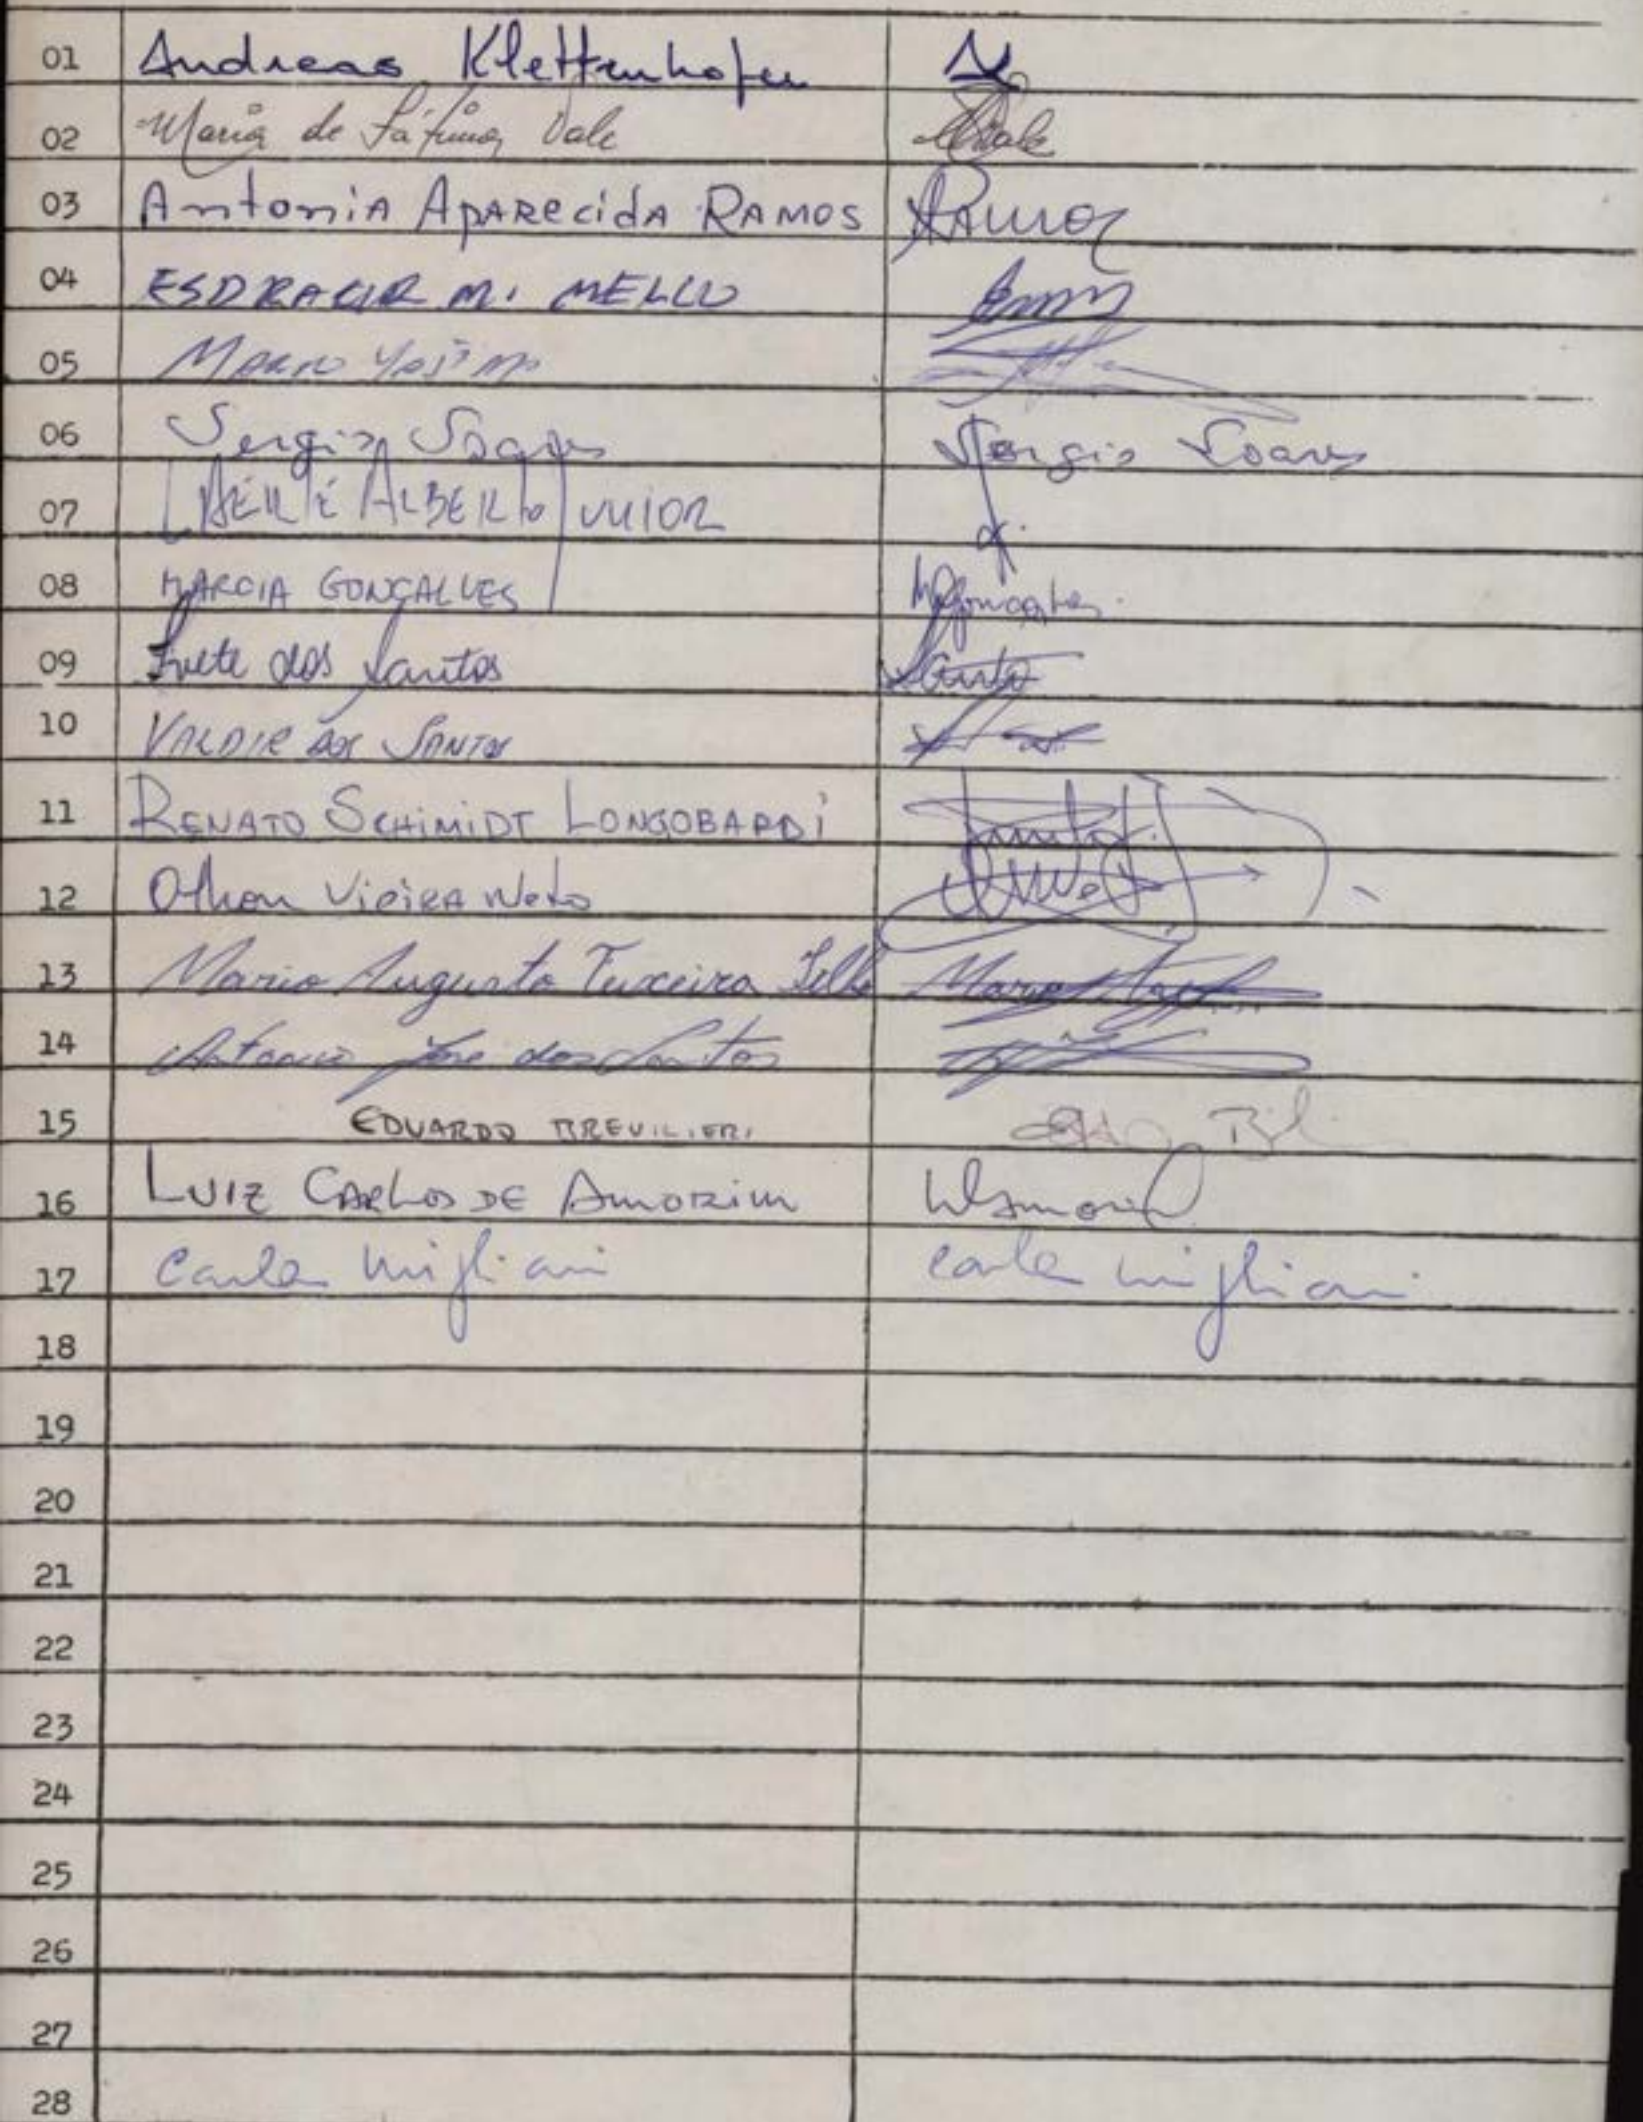 01 Andreas Klettenhofer
02 Maria de Fátima Vale Vale
03 Antonia Aparecida Ramos ARamos
04 ESDRACIR M. MELLO
05 Mario
06 Sergio Soares Sergio Soares
07 ALBERTO JUNIOR
08 MARCIA GONÇALVES MGonçalves
09 Ivete dos Santos Santos
10 VALDIR dos SANTOS
11 RENATO SCHIMIDT LONGOBARDI
12 Othon Vieira Neto
13 Mario Augusto Teixeira Filho Mario
14 Antonio Jose dos Santos
15 EDUARDO BREVILIERI
16 LUIZ CARLOS DE AMORIM LCAmorim
17 Carla Migliani Carla Migliani
18
19
20
21
22
23
24
25
26
27
28